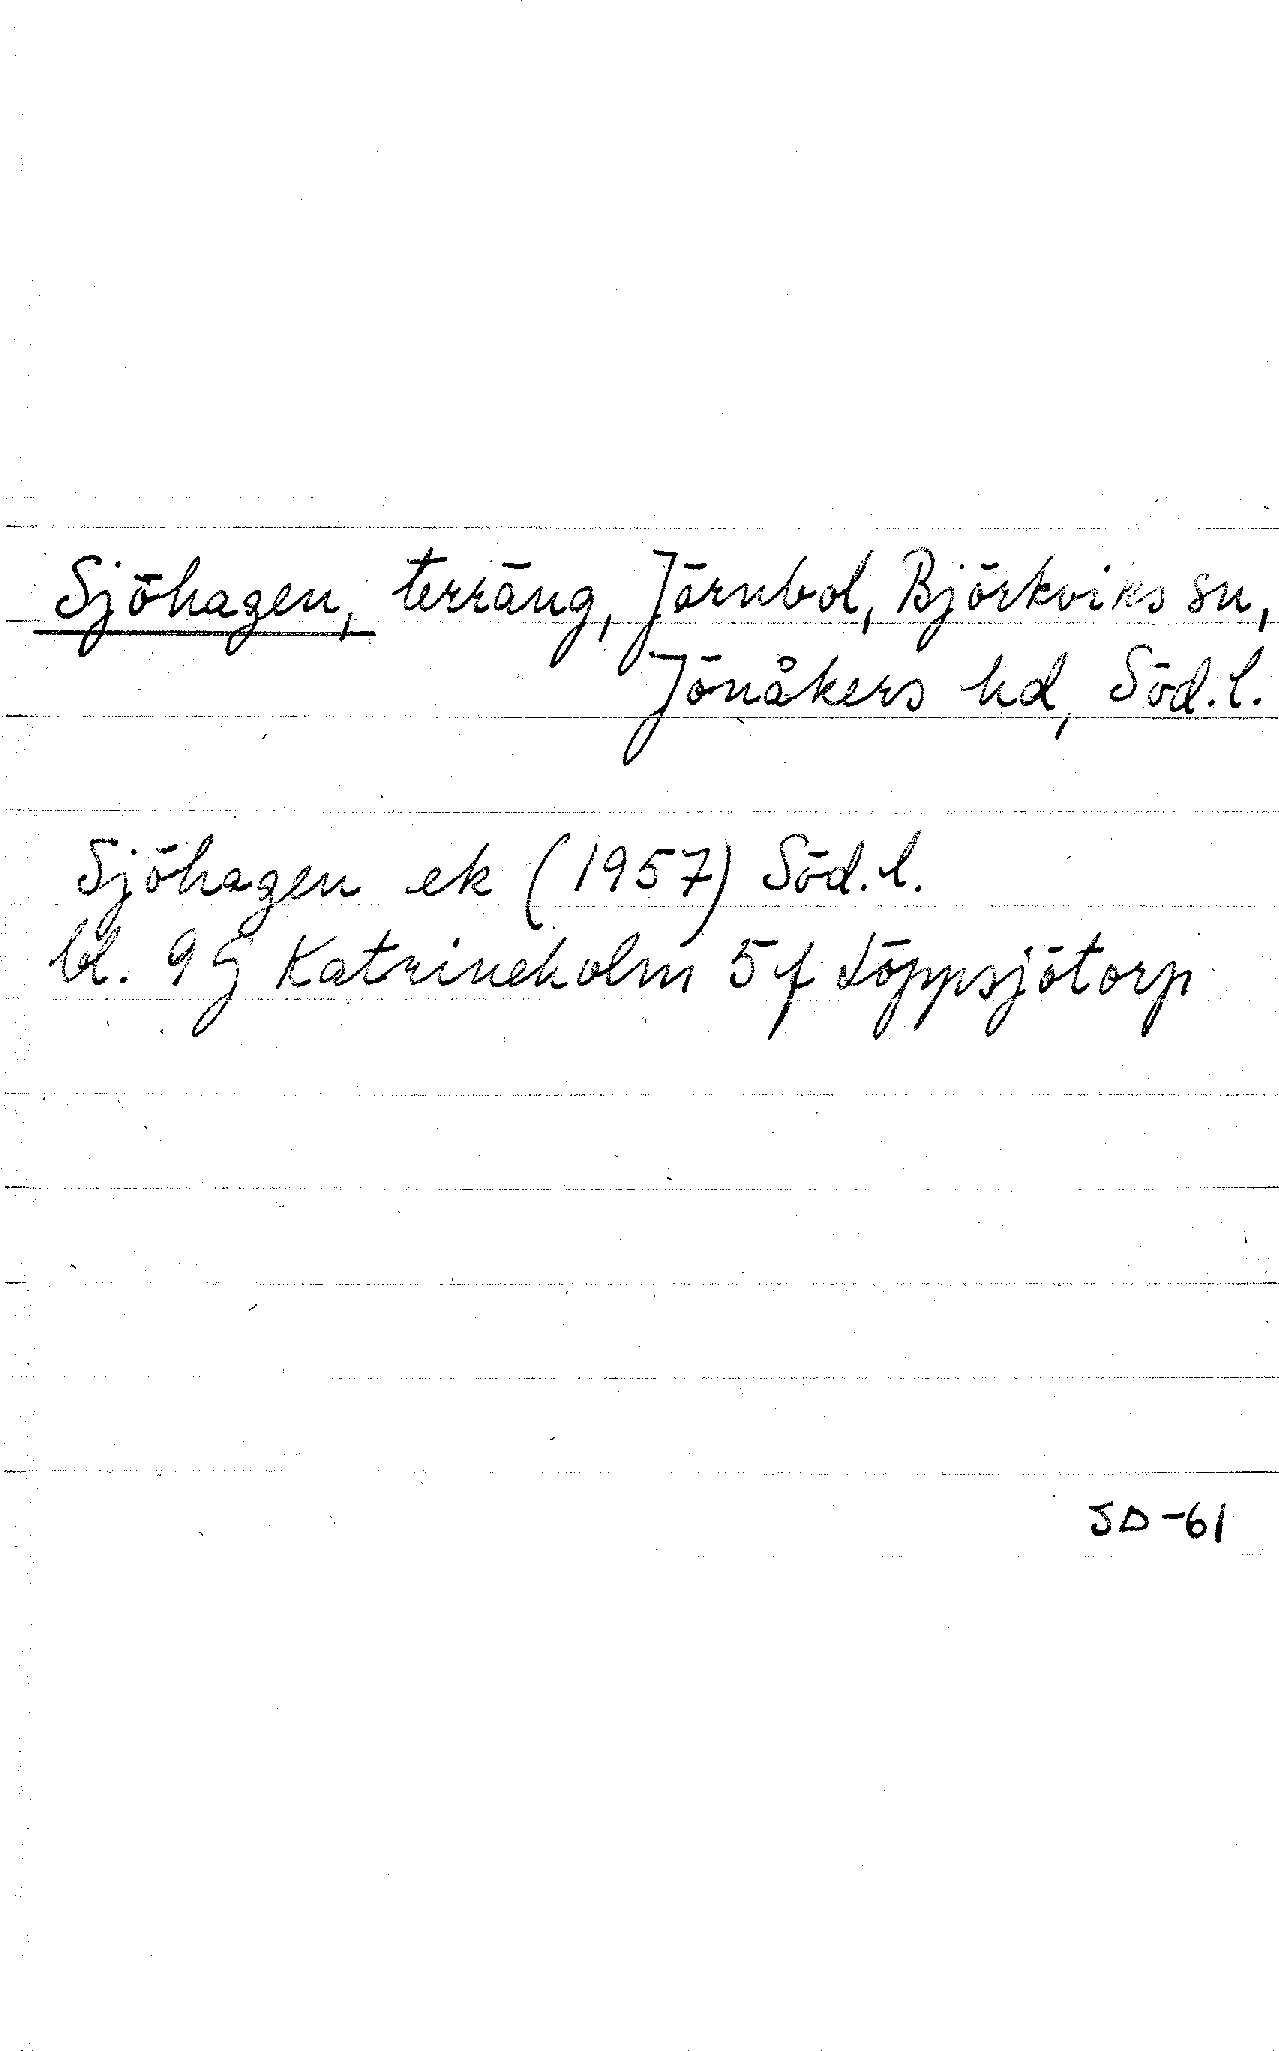 Sjöhagen, terräng, Järnbol, Björkviks sn,
Jönåkers hd, Söd.l.
Sjöhagen ek (1957) Söd.l.
bl. 9G Katrineholm 5f Löppsjötorp
SD-61